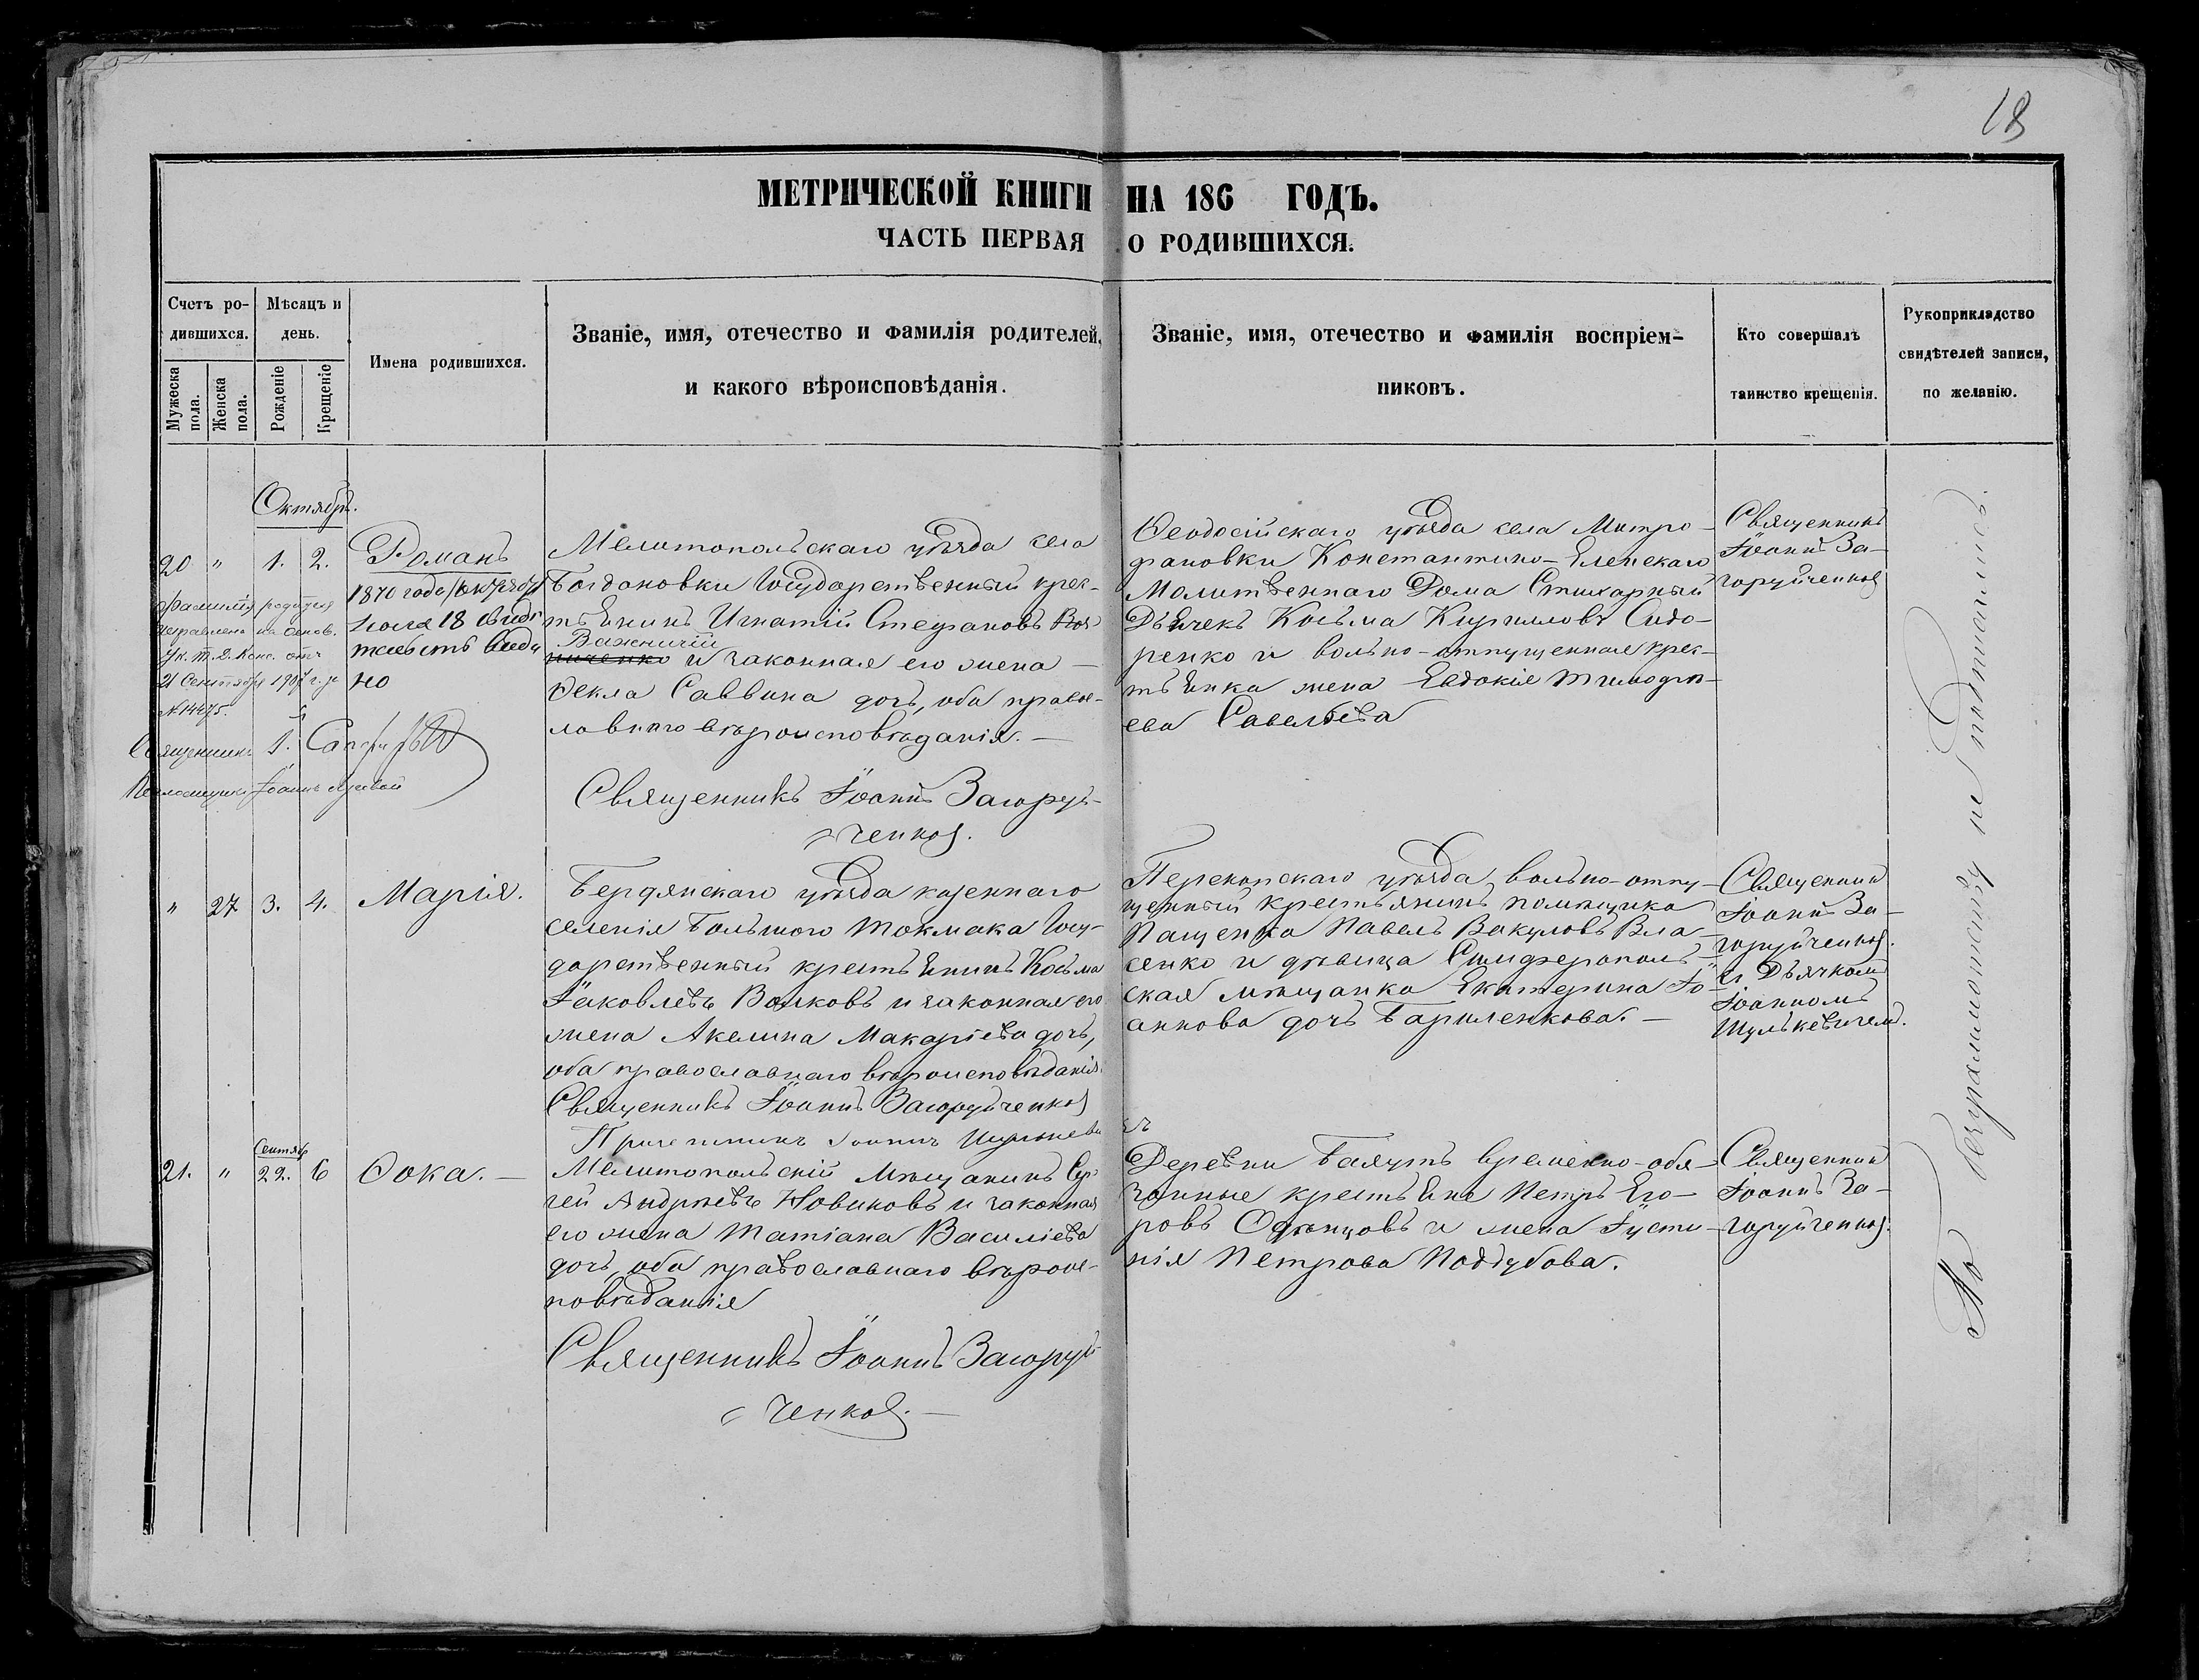 18
МЕТРИЧЕСКОЙ КНИГИ НА 186 ГОДЪ.
ЧАСТЬ ПЕРВАЯ О РОДИВШИХСЯ.
Счетъ ро-
дившихся.
Мужеска
пола.
Женска
пола.
Мѣсяцъ и
день.
Рожденіе
Крещеніе
Имена родившихся.
Званіе, имя, отечество и фамилія родителей,
и какого вѣроисповѣданія.
Званіе, имя, отечество и фамилія воспріем-
никовъ.
Кто совершалъ
таинство крещенія.
Рукоприкладство
свидѣтелей записи,
по желанію.
Октябрь.
20 " 1. 2.
Романъ
1870 года
Іюля 18
но
Фамилія родителя
исправлена на основ.
Ук. Т. Д. Конс. отъ
21 Сентября 190 г. за
№ 14475.
Священникъ
Іоаннъ
Мелитопольскаго уѣзда села
Богдановки Государственный крес-
тьянинъ Игнатій Стефановъ
Важничій
и законная его жена —
Ѳекла Саввина дочь, оба правос-
лавнаго вѣроисповѣданія. —
Священникъ Іоаннъ Загоруй-
ченко.
Ѳеодосійскаго уѣзда села Митро-
фановки Константино-Еленскаго
Молитвеннаго Дома Стихарный
Дьячекъ Косьма Кирилловъ Сидо-
ренко и вольно-отпущенная крес-
тьянка жена Евдокія Тимофѣ-
ева Савельева
Священникъ
Іоаннъ За-
горуйченко
" 27 3. 4.
Марія.
Бердянскаго уѣзда казеннаго
селенія Большого Токмака Госу-
дарственный крестьянинъ Косьма
Іаковлевъ Волковъ и законная его
жена Акелина Макаріева дочь,
оба православнаго вѣроисповѣданія.
Священникъ Іоаннъ Загоруйченко
Причетникъ Іоаннъ Шулькеви
чъ
Перекопскаго уѣзда вольно-отпу-
щенный крестьянинъ помѣщика
Пащенка Павелъ Вакуловъ Вла-
сенко и дѣвица Симферополь-
ская мѣщанка Екатерина Іо-
аннова дочь Гариленкова. —
Священникъ
Іоаннъ За-
горуйченко.
съ Дьячкомъ
Іоанномъ
Шулькевичемъ.
Сентяб
21. " 22. 6
Ѳока. —
Мелитопольскій Мѣщанинъ Сер-
гей Андреевъ Новиковъ и законная
его жена Татіана Василіева
дочь, оба православнаго вѣроис-
повѣданія
Священникъ Іоаннъ Загоруй-
ченко. —
Деревни Таячъ временно-обя-
занные крестьяне Петръ Его-
ровъ Одинцовъ и жена Іусти-
нія Петрова Поддубова.
Священникъ
Іоаннъ За-
горуйченко.
По безграмотству не подписались.